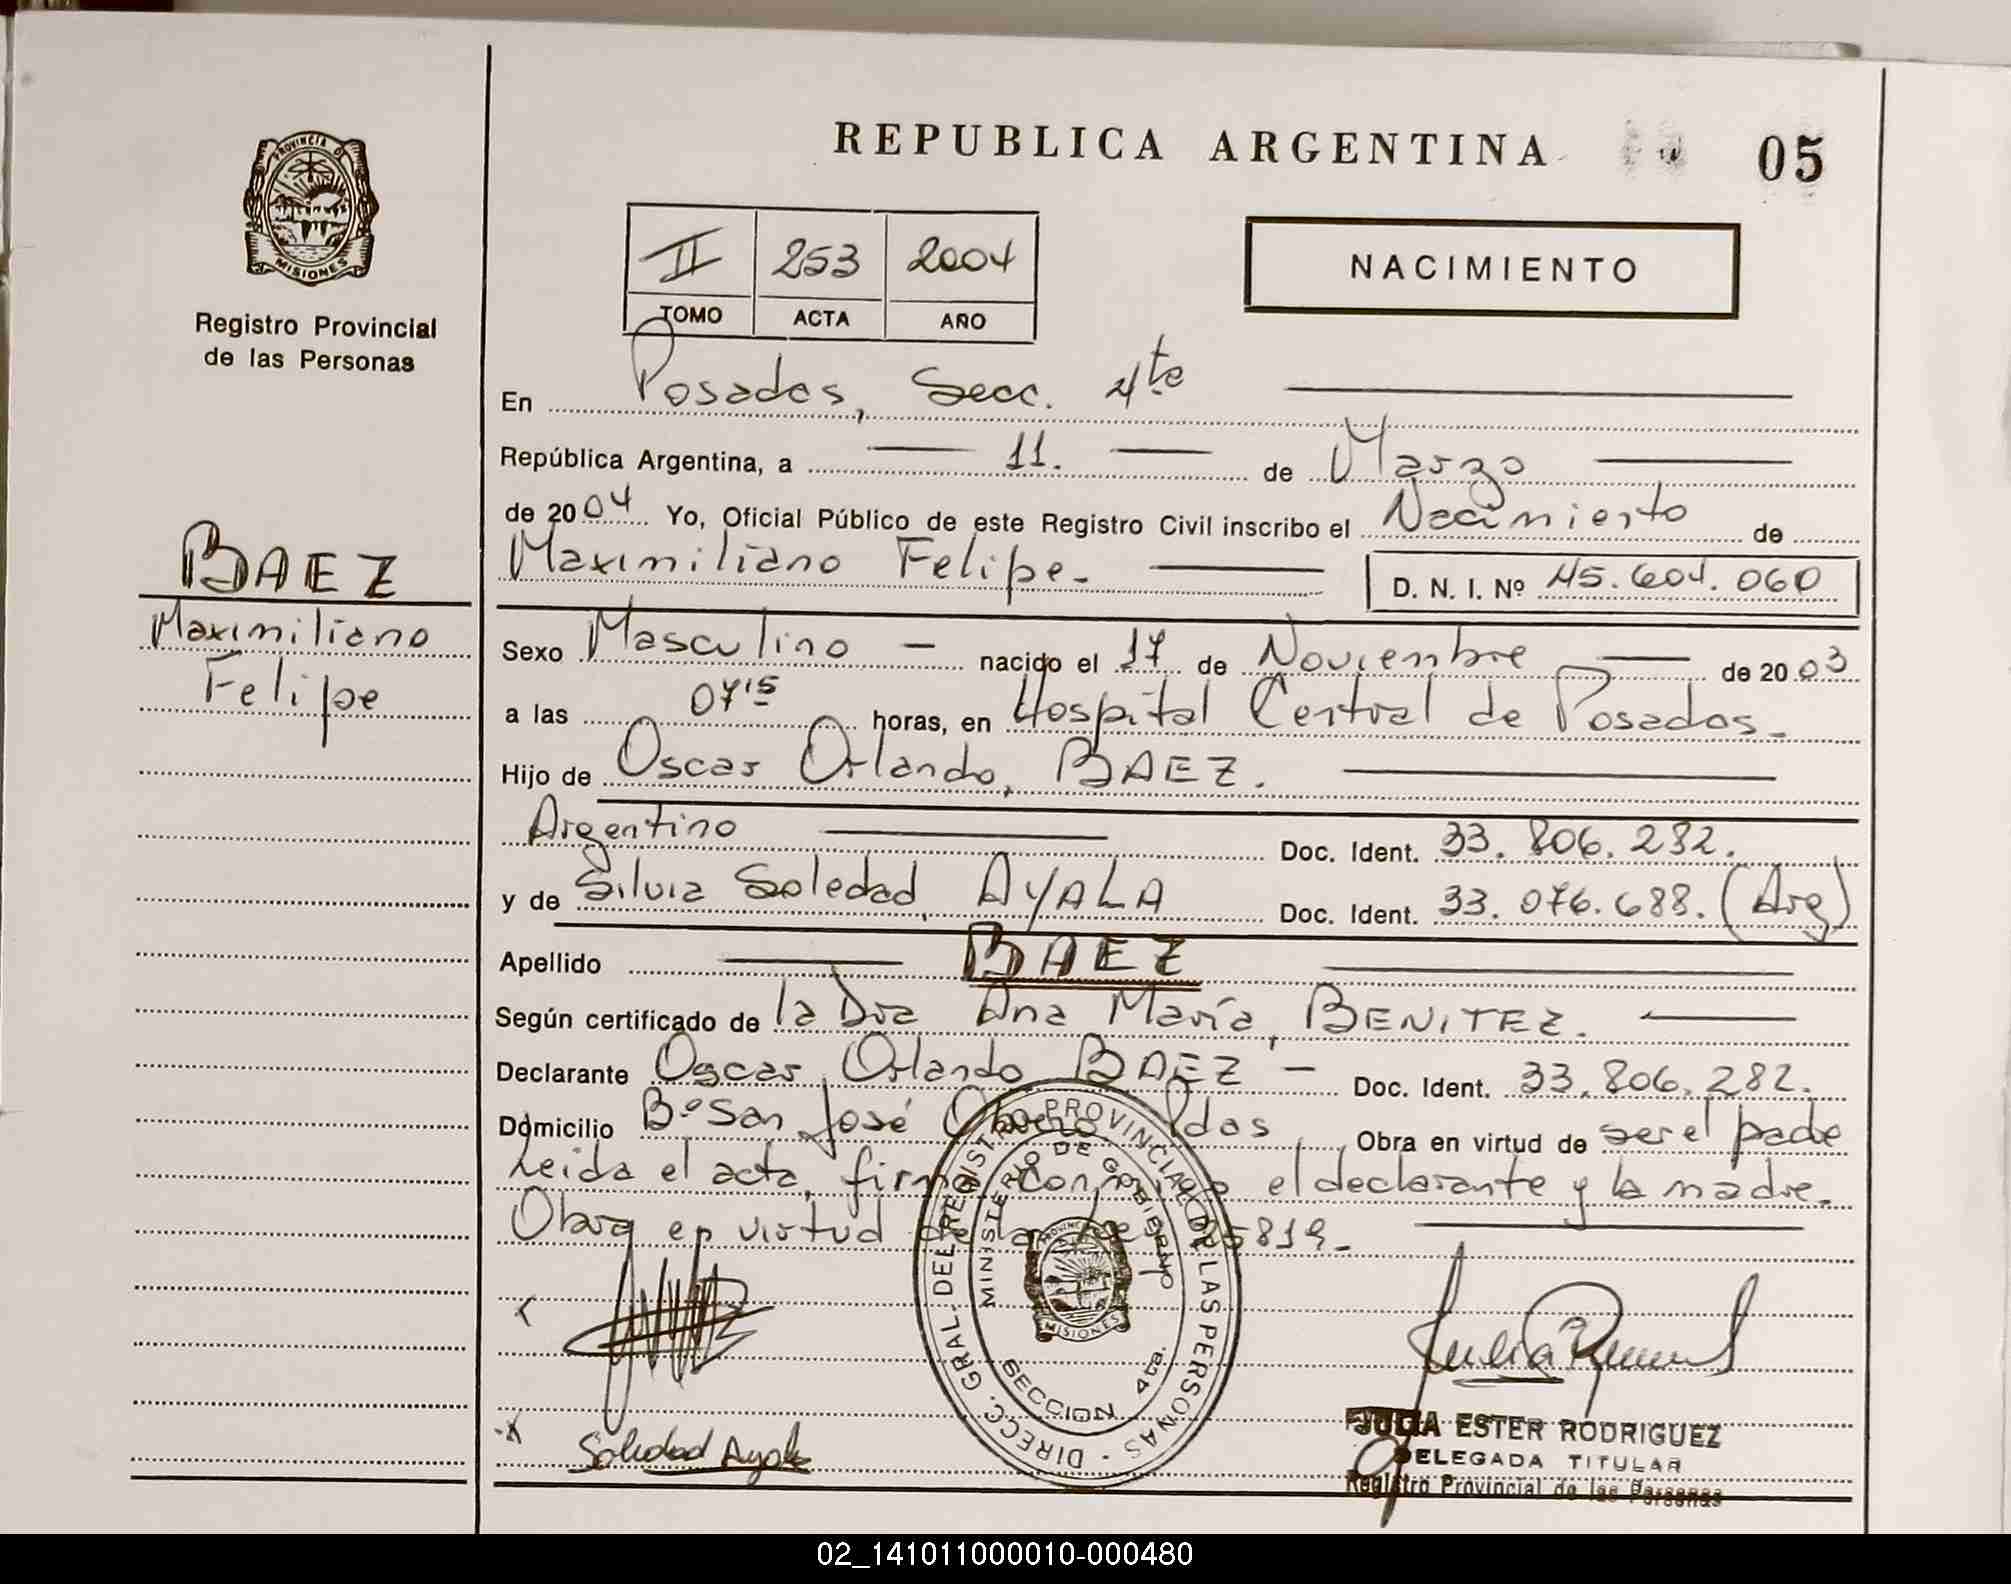 REPUBLICA ARGENTINA
05
PROVINCIA DE
MISIONES
Registro Provincial
de las Personas
II 253 2004
TOMO ACTA AÑO
NACIMIENTO
En Posadas, Secc. 4ta
República Argentina, a 11. de Marzo
de 2004 Yo, Oficial Público de este Registro Civil inscribo el Nacimiento de
Maximiliano Felipe.
D. N. I. Nº 45.604.060
BAEZ
Maximiliano
Felipe
Sexo Masculino nacido el 17 de Noviembre de 2003
a las 07 15 horas, en Hospital Central de Posadas
Hijo de Oscar Orlando, BAEZ.
Argentino Doc. Ident. 33.806.282.
y de Silvia Soledad, AYALA Doc. Ident. 33.076.688. (Arg)
Apellido BAEZ
Según certificado de la Dra Ana María, BENITEZ.
Declarante Oscar Orlando BAEZ Doc. Ident. 33.806.282.
Domicilio Bº San José Obrero Pdas, Obra en virtud de ser el padre
Leida el acta, firma Conmigo el declarante y la madre.
Obra en virtud de la 25819
Soledad Ayala
DIRECC. GRAL. DEL REGISTRO PROVINCIAL DE LAS PERSONAS
MINISTERIO DE GOBIERNO
PROVINCIA
MISIONES
SECCION 4ta.
JULIA ESTER RODRIGUEZ
DELEGADA TITULAR
Registro Provincial de las Personas
02_141011000010-000480